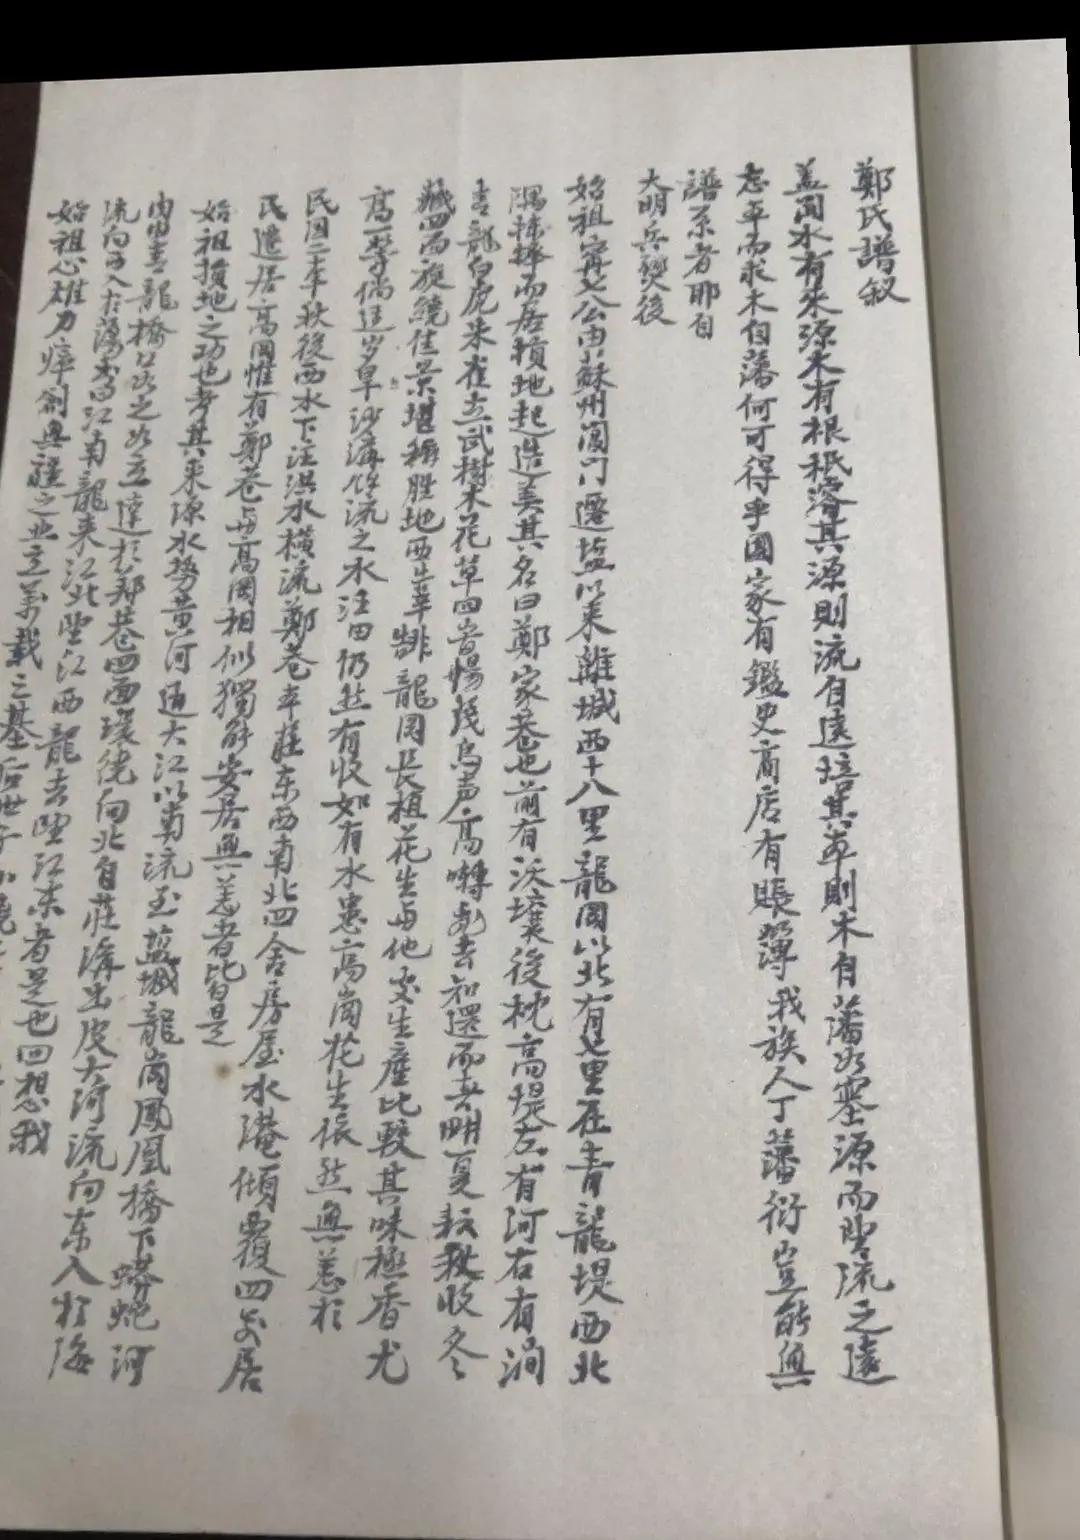 鄭氏譜叙
盖聞水有來源木有根柢濬其源則流自遠培其本則木自藩如塞源而望流之遠
忘本而求木自藩何可得乎國家有鑑史商店有賬簿我族人丁藩衍豈能無
譜系者耶自
大明兵燹後
始祖甯七公由蘇州閶门遷塩以來離城西十八里龍岡以北有七里在青龍堤西北
隅擇而居損地起造美其名曰鄭家巷也前有沃壤後枕高堤左有河右有澗
青龍白虎朱雀玄武樹木花草四時暢茂鳥声高囀知還而其明夏耘秋收冬
藏四面旋繞佳景堪稱胜地西龍岡長植花生与他処生産比較其味極香尤
髙一等倘逢岁旱沙溝餘流之水注田仍然有收如有水患高崗花生依然無恙於
民国二年秋後西水下注洪水橫流鄭巷本莊东西南北四舍房屋水淹傾覆四处居
民遷居高岡惟有鄭巷与高岡相似獨能安居無恙者皆是
始祖損地之功也考其來源水势黄河通大江以南流至盐城龍崗鳳凰橋下蟒蛇河
内由青龍橋口次之次直達於鄭巷四面環绕向北自莊溝出皮大河流向东入於海
流向西入於蕩為江南龍来江北望江西龍去望江东者是也回想我
始祖心雄力瘁創無疆之业立万载之基后世子